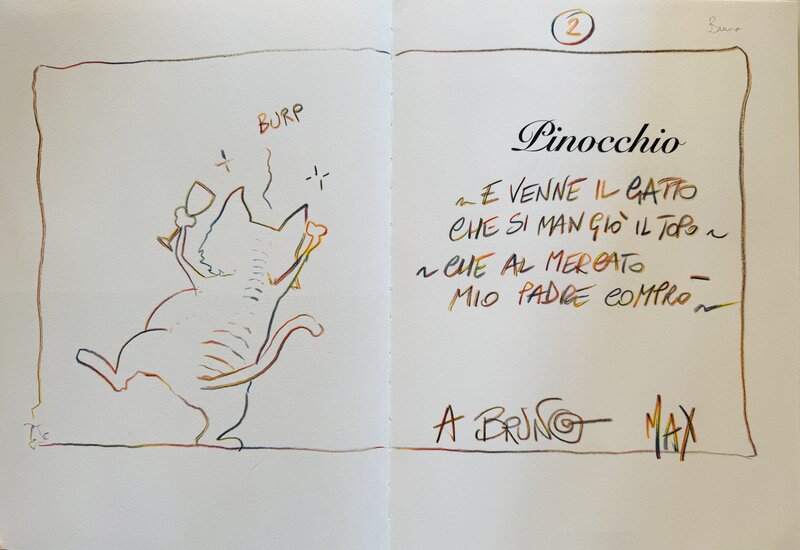 2
Bruno
BURP
Pinocchio
~ E VENNE IL GATTO
CHE SI MANGIÒ IL TOPO ~
~ CHE AL MERCATO
MIO PADRE COMPRÒ ~
A BRUNO MAX